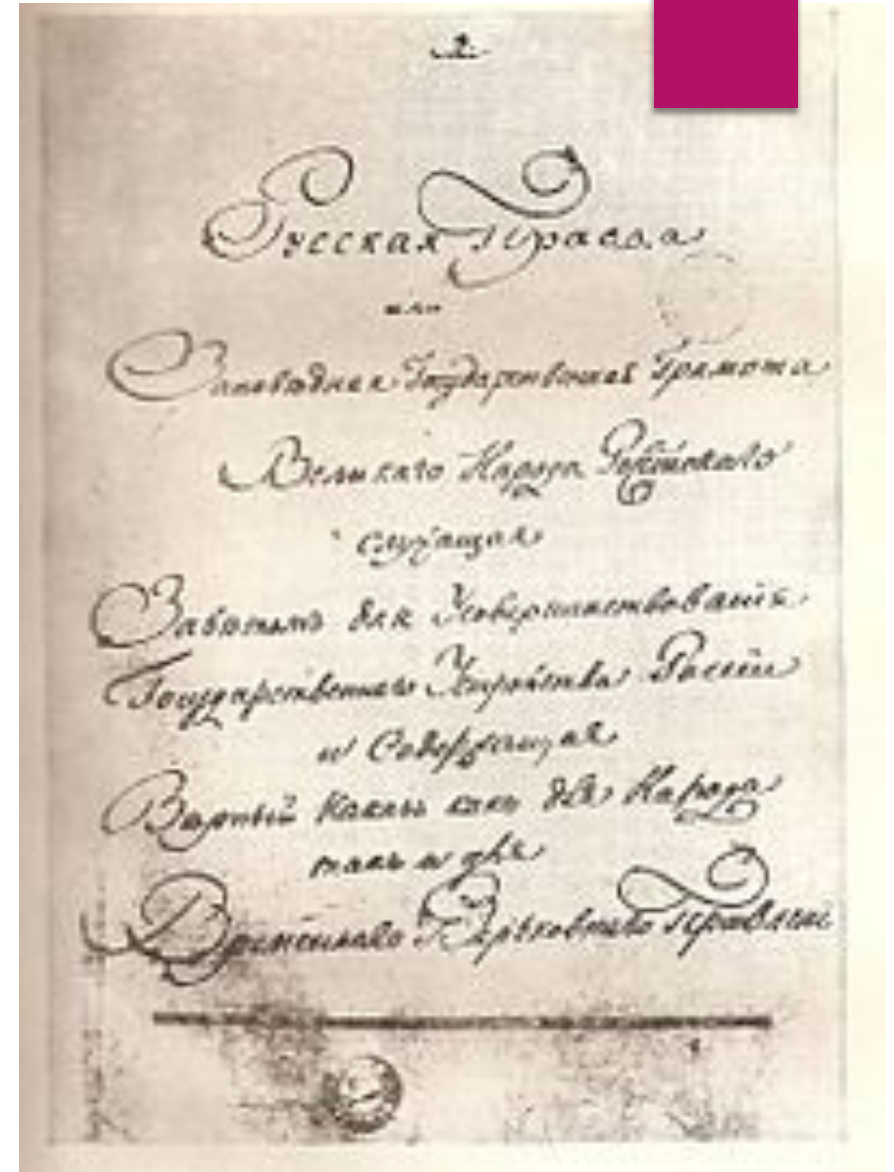 2.
Русская Правда
или
Заповедная Государственная Грамота
Великаго Народа Россійскаго
служащая
Завѣтомъ для Усовершенствованія
Государственнаго Устройства Россіи
и Содержащая
Вѣрный Наказъ какъ для Народа
такъ и для
Временнаго Верьховнаго Правленія